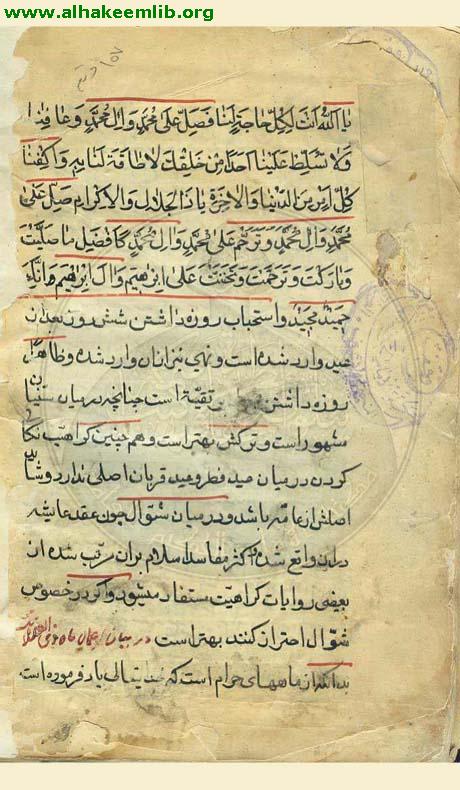 www.alhakeemlib.org
يا اَللّٰهُ اَنتَ لِكُلِّ حاجَةٍ لَنا فَصَلِّ عَلىٰ مُحَمَّدٍ وَاٰلِ مُحَمَّدٍ وَعافِنا
وَلا تُسَلِّطْ عَلَيْنا اَحَداً مِنْ خَلْقِكَ لا طاقَةَ لَنا بِهِ وَاكْفِنا
كُلَّ اَمْرٍ مِنَ الدُّنْيا وَالاٰخِرَةِ يا ذَا الجَلالِ وَالاِكْرامِ صَلِّ عَلىٰ
مُحَمَّدٍ وَاٰلِ مُحَمَّدٍ وَتَرَحَّم عَلىٰ مُحَمَّدٍ وَاٰلِ مُحَمَّدٍ كَاَفْضَلِ ما صَلَّيْتَ
وَبارَكْتَ وَتَرَحَّمْتَ وَتَحَنَّنْتَ عَلىٰ اِبْرٰهيمَ وَاٰلِ اِبْرٰهيمَ اِنَّكَ
حَميدٌ مَجيدٌ واستحباب روزه داشتن شش روز بعد از
عید وارد شده است و نهی نیز از ان وارد شده و ظاهرا
روزه داشتن تقیّة است چنانچه در میان سنیان
مشهور است و ترکش بهتر است و هم چنین کراهت نکاح
کردن در میان عید فطر و عید قربان اصلی ندارد و شاید
اصلش از عامّه باشد و در میان شوّال چون عقد عایشه
در ان واقع شده و اکثر مفاسد اسلام بر ان مرتّب شده از
بعضی روایات کراهیّت مستفاد میشود و اگر در خصوص
شوّال احتراز کنند بهتر است در بیان اعمال ماه ذی القعده
بدانکه از ماههای حرام است که خدایتعالی یاد فرموده است